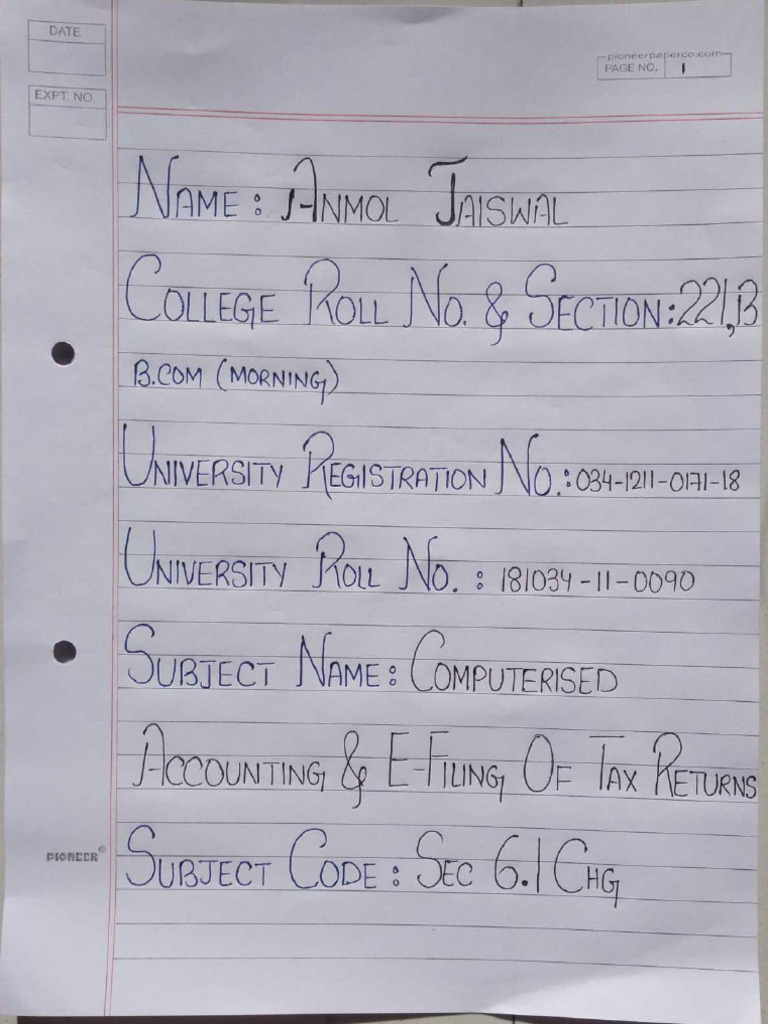 DATE
pioneerpaperco.com
PAGE NO. 1
EXPT. NO.
NAME: ANMOL JAISWAL
COLLEGE ROLL NO. & SECTION: 221, B
B.COM (MORNING)
UNIVERSITY REGISTRATION NO.: 034-1211-0171-18
UNIVERSITY ROLL NO. : 181034-11-0090
SUBJECT NAME: COMPUTERISED
ACCOUNTING & E-FILING OF TAX RETURNS
PIONEER®
SUBJECT CODE: SEC 6.1 CHG